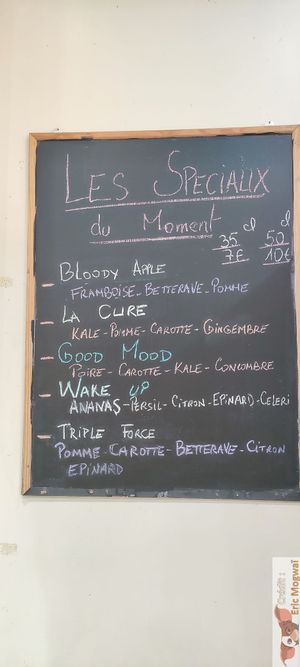 LES SPECIAUX
du Moment
35 cl 50 cl
7€ 10€
- BLOODY APPLE
FRAMBOISE - BETTERAVE - POMME
- LA CURE
KALE - POMME - CAROTTE - GINGEMBRE
- GOOD MOOD
POIRE - CAROTTE - KALE - CONCOMBRE
- WAKE UP
ANANAS - PERSIL - CITRON - EPINARD - CELERI
- TRIPLE FORCE
POMME - CAROTTE - BETTERAVE - CITRON
EPINARD
Crédit :
Eric Mogwaï